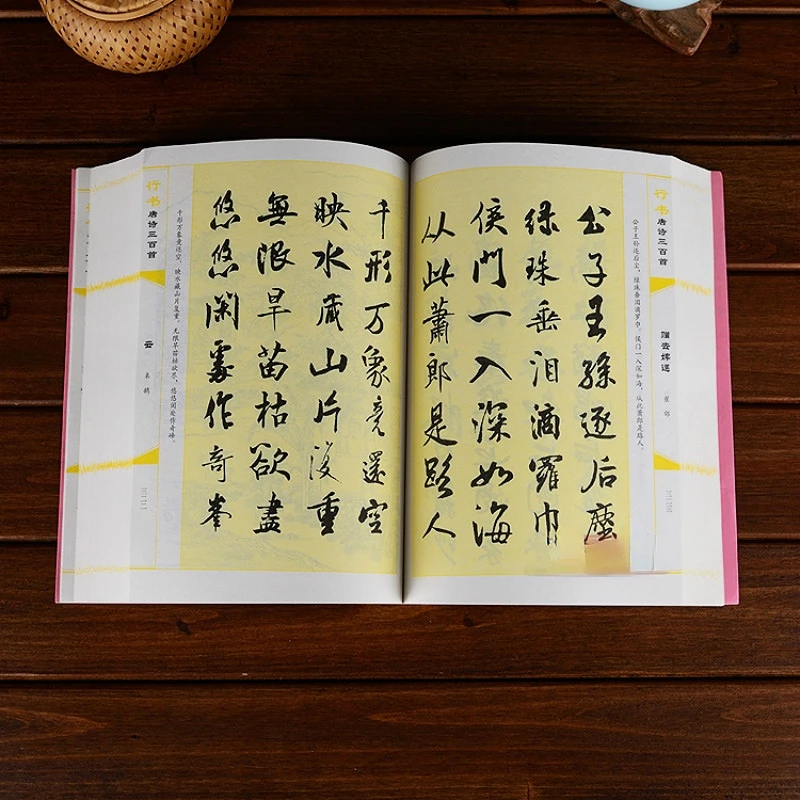 行书唐诗三百首
崔郊
公子王孙逐后尘，绿珠垂泪滴罗巾。侯门一入深如海，从此萧郎是路人。
公子王孫逐后塵
绿珠垂泪滴羅巾
侯門一入深如海
从此蕭郎是路人
千形万象竟還空
映水藏山片復重
無限旱苗枯欲盡
悠悠闲處作奇峯
千形万象竟还空，映水藏山片复重。无限旱苗枯欲尽，悠悠闲处作奇峰。
行书唐诗三百首
云
来鹄